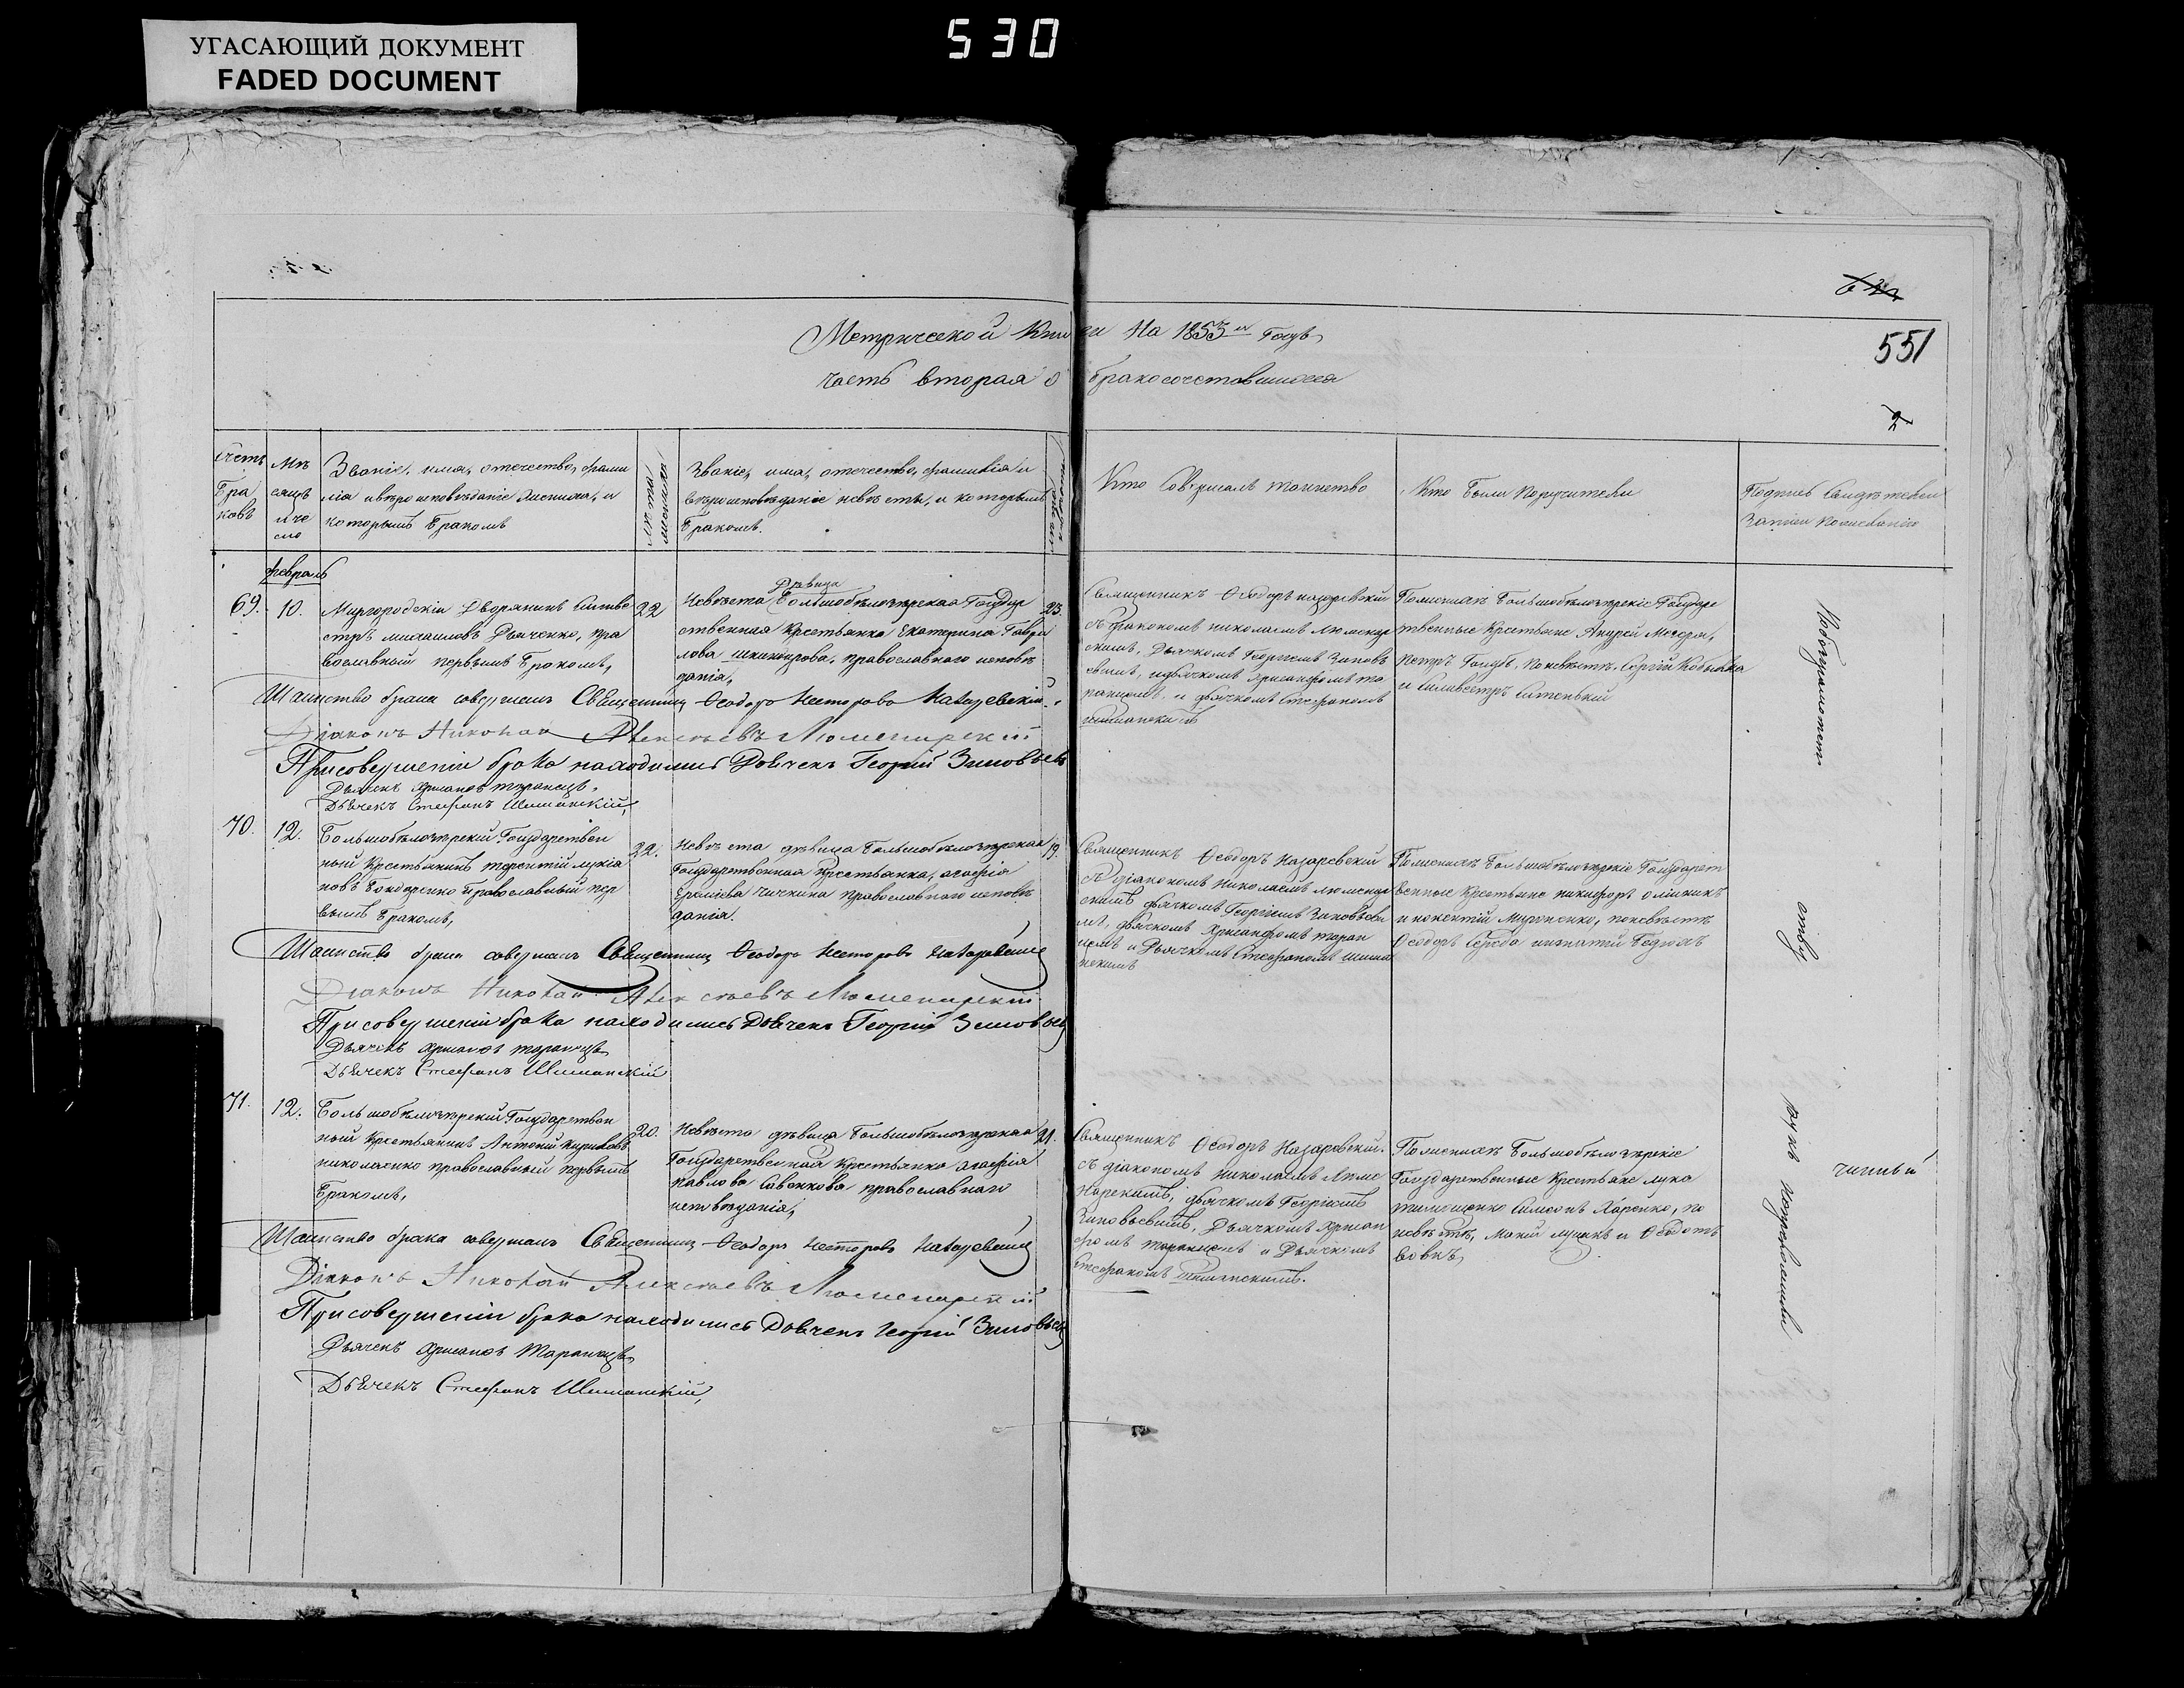 УГАСАЮЩИЙ ДОКУМЕНТ
FADED DOCUMENT
530
551
2
Метрической Книги На 1853й Годъ
часть вторая о бракосочетавшихся
Счетъ Браковъ
Мѣсяцъ и число
Званіе, имя, отечество, фами
лія и вѣроисповѣданіе жениха, и
которымъ бракомъ
Лѣта жениха
Званіе, имя, отечество, фамилія и
вѣроисповѣданіе невѣсты, и которымъ
бракомъ.
Кто Совершалъ таинство
Кто были Поручители
Подпись Свидѣтелей
Записи по желанію
Февраль
69.
10.
Миргородскій Дворянинъ Силве
стръ Михаиловъ Дьяченко, пра
вославный первымъ бракомъ,
22
Дѣвица
Невѣста Большобѣлозѣрская Государ
ственная Крестьянка Екатерина Гаври
лова, православнаго исповѣ
данія,
23.
Священникъ Ѳеодоръ Назаревскій
съ діакономъ николаемъ люменар
скимъ, Дьячкомъ Георгіемъ Зиновь
евымъ, идьячкомъ Хрисанфомъ та
ранцомъ и дьячкомъ Стефаномъ
шиманскимъ
По женихѣ Большобѣлозѣрскіе Государс
твенные Крестьяне Андрей,
Петръ Голубъ, По невѣстѣ, Сергій Кобылка
и Силивестръ Ситенький
Таинство брака совершалъ Священникъ Ѳеодоръ Несторовъ Назаревскій
Діаконъ Николай Алексѣевъ Люменарскій
При совершеніи брака находились Дьячекъ Георгій Зиновьевъ
Дьячекъ Хрисанфъ таранецъ,
Дьячекъ Стефанъ Шиманскій,
70.
12.
Большобѣлозѣрскій Государствен
ный Крестьянинъ терентій лукія
новъ Бондаренко Православный пер
вымъ бракомъ,
22.
Невѣста дѣвица Большобѣлозѣрская
Государственная Крестьянка, агафія
Ермиева Чичкина православнаго исповѣ
данія.
19.
Священникъ Ѳеодоръ Назаревскій
съ діакономъ Николаемъ люменар
скимъ дьячкомъ Георгіемъ Зиновьевы
мъ, дьячкомъ Хрисанфомъ таран
цомъ и Дьячкомъ Стефаномъ шима
нскимъ
По женихѣ Большобѣлозѣрскіе Государст
венные Крестьяне никифоръ олійникъ
инокентій Мироненко, поневѣстѣ
Ѳеодоръ Середа игнатій Педяхъ
Таинство брака совершалъ Священникъ Ѳеодоръ Несторовъ Назаревскій
Діаконъ Николай Алексѣевъ Люменарскій
При совершеніи брака находились Дьячекъ Георгій Зиновьевъ
Дьячекъ Хрисанфъ таранецъ
Дьячекъ Стефанъ Шиманскій
71.
12.
Большобѣлозѣрскій Государствен
ный Крестьянинъ Антоній Кириловъ
николаенко православный первымъ
бракомъ,
20.
Невѣста дѣвица Большобѣлозѣрская
Государственная Крестьянка агафія
Павлова Савенкова православнаго
исповѣданія,
21.
Священникъ Ѳеодоръ Назаревскій.
съ діакономъ Николаемъ люме
нарскимъ, дьячкомъ Георгіемъ
Зиновьевымъ, Дьячкомъ Хрисан
фомъ таранцомъ и Дьячкомъ
Стефаномъ шиманскимъ.
По женихѣ Большобѣлозѣрскіе
Государственные Крестьяне лука
тимошенко Симеонъ Харенко, по
невѣстѣ, Мокій луцикъ и Ѳедотъ
Вовкъ,
Таинство брака совершалъ Священникъ Ѳеодоръ Несторовъ Назаревскій
Діаконъ Николай Алексѣевъ Люменарскій
При совершеніи брака находились Дьячекъ Георгій Зиновьевъ
Дьячекъ Хрисанфъ Таранецъ
Дьячекъ Стефанъ Шиманскій,